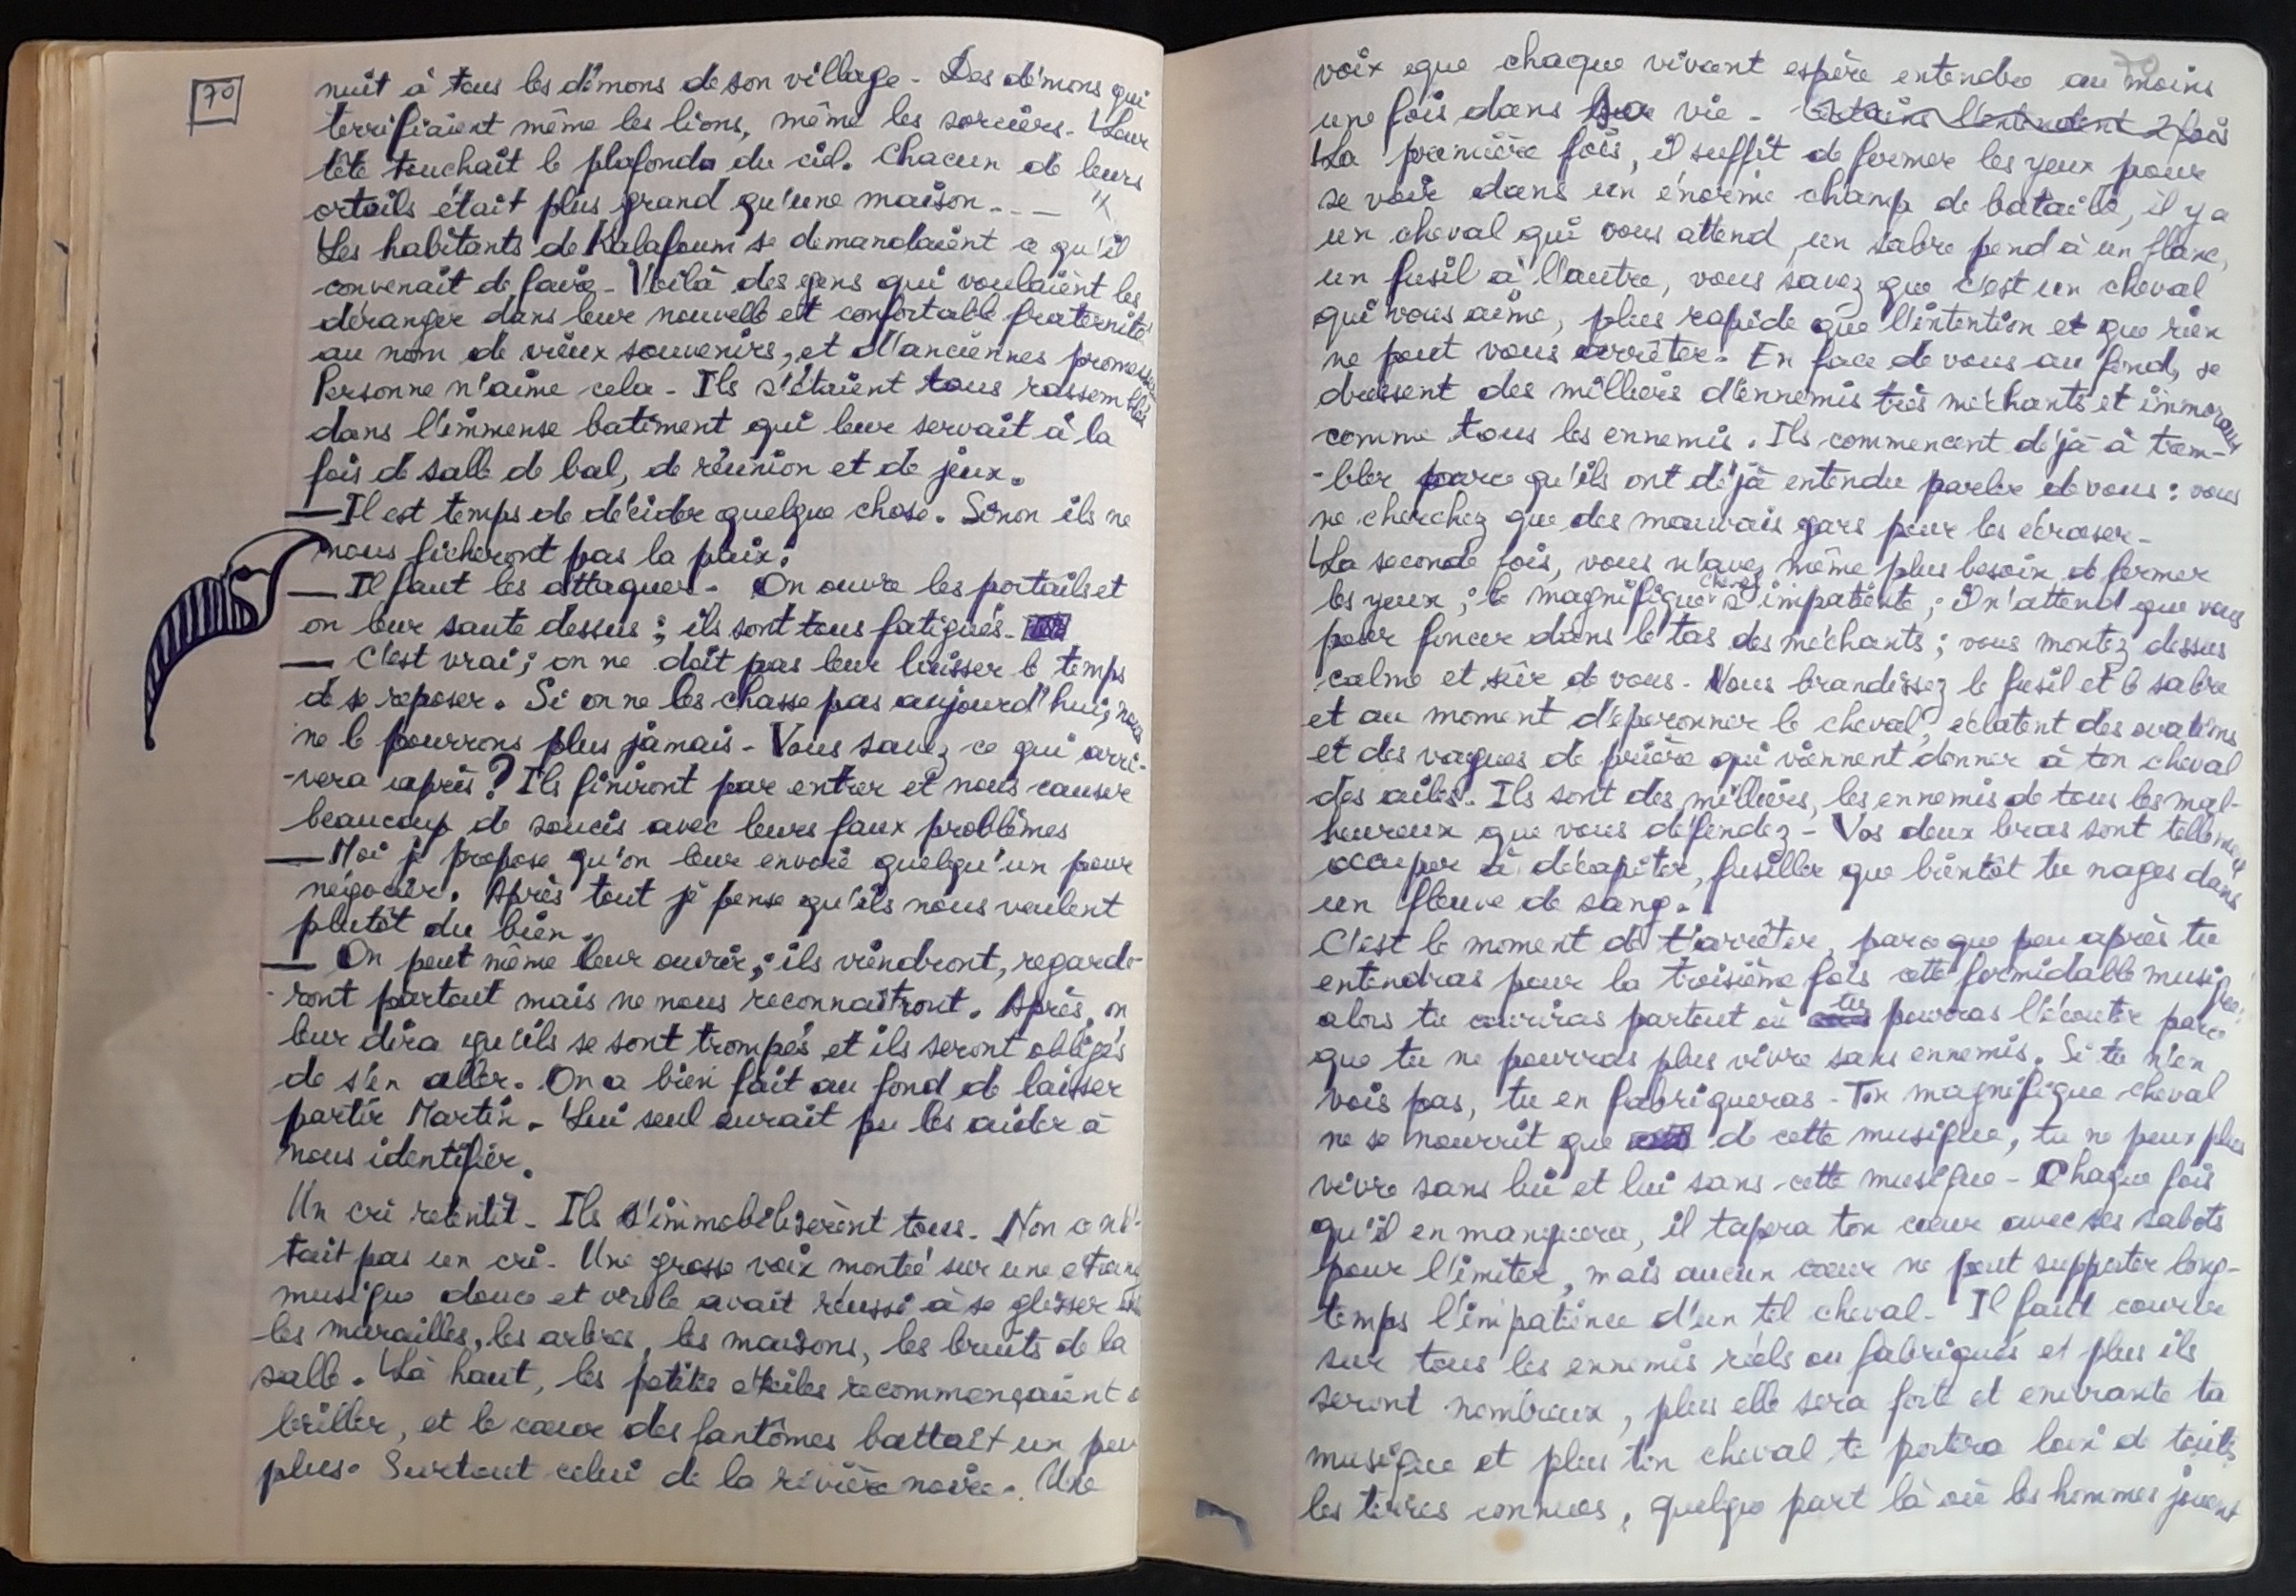 70
nuit à tous les démons de son village - Des démons qui
terrifiaient même les lions, même les sorciers. Leur
tête touchait le plafond du ciel. Chacun de leurs
orteils était plus grand qu'une maison - - -
Les habitants de Kalafoum se demandaient ce qu'il
convenait de faire - Voilà des gens qui voulaient les
déranger dans leur nouvelle et confortable fraternité
au nom de vieux souvenirs, et d'anciennes promesses
Personne n'aime cela - Ils s'étaient tous rassemblés
dans l'immense batiment qui leur servait à la
fois de salle de bal, de réunion et de jeux.
— Il est temps de décider quelque chose. Sinon ils ne
nous ficheront pas la paix.
— Il faut les attaquer - On ouvre les portails et
on leur saute dessus ; ils sont tous fatigués -
— C'est vrai ; on ne doit pas leur laisser le temps
de se reposer. Si on ne les chasse pas aujourd'hui, nous
ne le pourrons plus jamais - Vous savez ce qui arri-
-vera après ? Ils finiront par entrer et nous causer
beaucoup de soucis avec leurs faux problèmes
— Moi je propose qu'on leur envoie quelqu'un pour
négocier. Après tout je pense qu'ils nous veulent
plutôt du bien.
— On peut même leur ouvrir ; ils viendront, regarde-
-ront partout mais ne nous reconnaîtront. Après, on
leur dira qu'ils se sont trompés et ils seront obligés
de s'en aller. On a bien fait au fond de laisser
partir Martin - Lui seul aurait pu les aider à
nous identifier.
Un cri retentit - Ils s'immobilisèrent tous. Non ce n'é-
tait pas un cri - Une grosse voix montée sur une
musique douce et virile avait réussi à se glisser
les murailles, les arbres, les maisons, les bruits de la
salle. Là haut, les petites étoiles recommençaient à
briller, et le cœur des fantômes battait un peu
plus. Surtout celui de la rivière noire - Une
voix que chaque vivant espère entendre au moins
une fois dans sa vie - Certains l'entendent 2 fois
La première fois, il suffit de fermer les yeux pour
se voir dans un énorme champ de bataille, il y a
un cheval qui vous attend, un sabre pend à un flanc,
un fusil à l'autre, vous savez que c'est un cheval
qui vous aime, plus rapide que l'intention et que rien
ne peut vous arrêter. En face de vous au fond, se
dressent des milliers d'ennemis très méchants et immoraux
comme tous les ennemis. Ils commencent déjà à trem-
-bler parce qu'ils ont déjà entendu parler de vous : vous
ne cherchez que des mauvais gars pour les écraser -
La seconde fois, vous n'avez même plus besoin de fermer
les yeux ; le magnifique cheval s'impatiente ; il n'attend que vous
pour foncer dans le tas des méchants ; vous montez dessus
calme et sûr de vous - Vous brandissez le fusil et le sabre
et au moment d'éperonner le cheval, éclatent des ovations
et des vagues de prière qui viennent donner à ton cheval
des ailes. Ils sont des milliers, les ennemis de tous les mal-
heureux que vous défendez - Vos deux bras sont tellement
occuper à décapiter, fusiller que bientôt tu nages dans
un fleuve de sang.
C'est le moment de t'arrêter, parce que peu après tu
entendras pour la troisième fois cette formidable musique ;
alors tu courriras partout où tu pourras l'écouter parce
que tu ne pourras plus vivre sans ennemis. Si tu n'en
vois pas, tu en fabriqueras - Ton magnifique cheval
ne se nourrit que de cette musique, tu ne peux plus
vivre sans lui et lui sans cette musique - Chaque fois
qu'il en manquera, il tapera ton cœur avec ses sabots
pour l'imiter, mais aucun cœur ne peut supporter long-
temps l'impatience d'un tel cheval - Il faut courir
sur tous les ennemis réels ou fabriqués et plus ils
seront nombreux, plus elle sera forte et enivrante ta
musique et plus ton cheval te portera loin de toutes
les terres connues, quelque part là où les hommes jouent